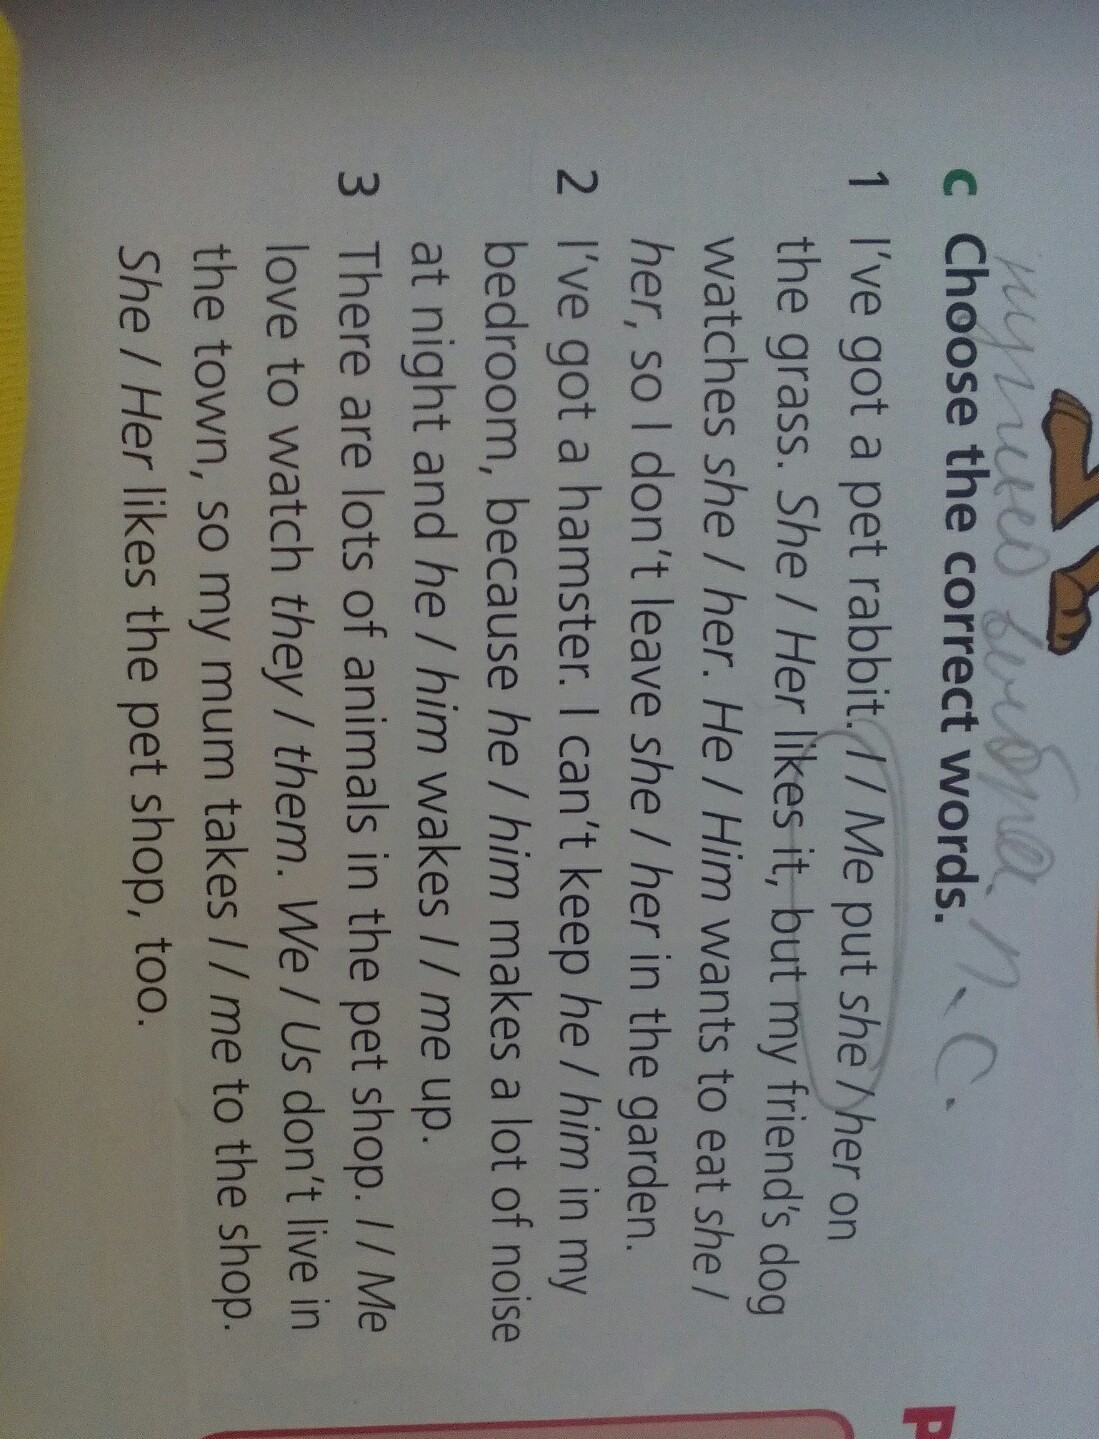 C Choose the correct words.
1 I've got a pet rabbit. I / Me put she / her on
the grass. She / Her likes it, but my friend's dog
watches she / her. He / Him wants to eat she /
her, so I don't leave she / her in the garden.
2 I've got a hamster. I can't keep he / him in my
bedroom, because he / him makes a lot of noise
at night and he / him wakes I / me up.
3 There are lots of animals in the pet shop. I / Me
love to watch they / them. We / Us don't live in
the town, so my mum takes I / me to the shop.
She / Her likes the pet shop, too.
P